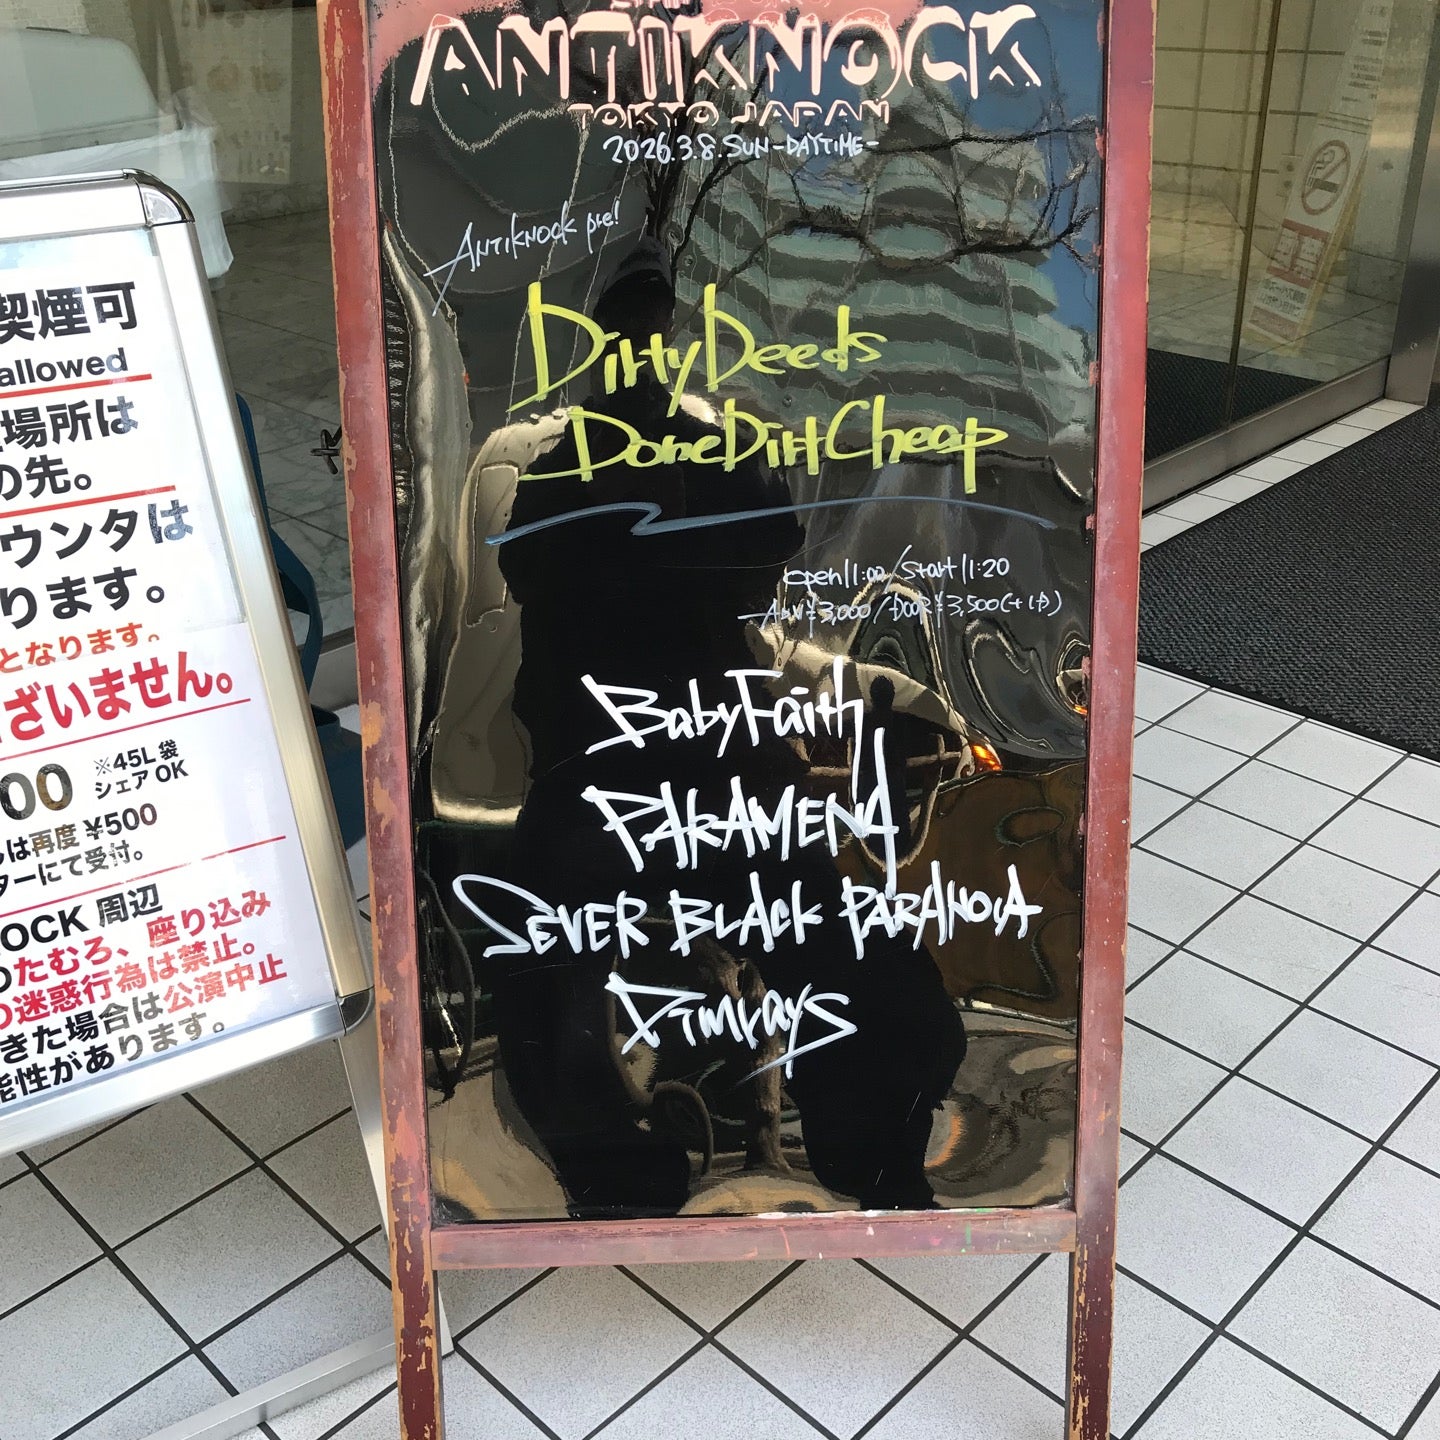 ANTIKNOCK
TOKYO JAPAN
2026.3.8.SUN-DAYTIME-
ANTIKNOCK pre!
DirtyDeeds
DoneDirtCheap
open11:00/Start11:20
Adv¥3,000/DOOR¥3,500(+1D)
BabyFaith
PAKAMENA
SEVER BLACK PARANOIA
Dimrays
喫煙可
allowed
場所は
の先。
ウンタは
ります。
となります。
ございません。
00 ※45L 袋
シェア OK
は再度 ¥500
ターにて受付。
OCK 周辺
のたむろ、座り込み
の迷惑行為は禁止。
きた場合は公演中止
能性があります。